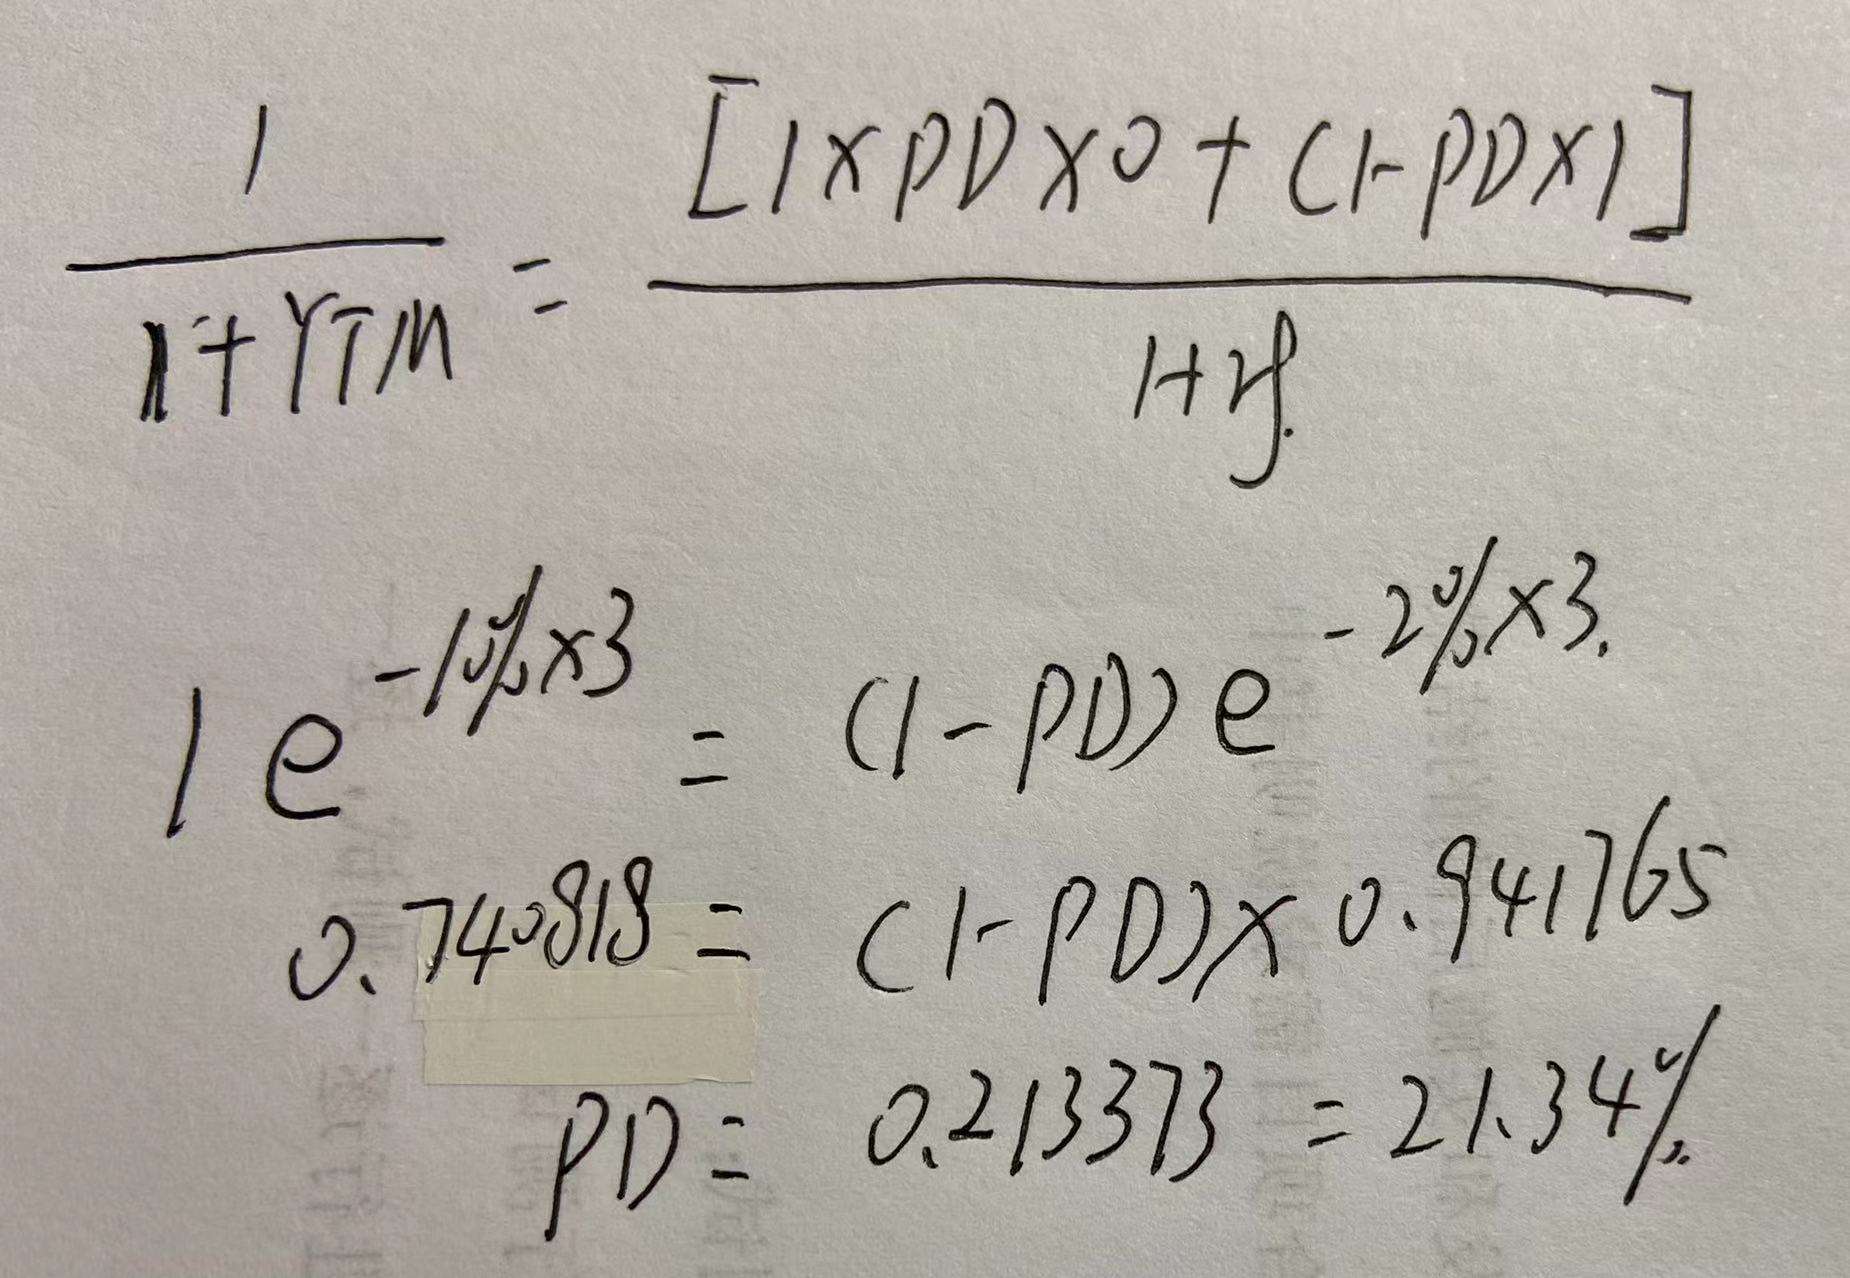 1 / 1+YTM = [1×PD×0+(1-PD×1] / 1+rf.
1 e^-10%×3 = (1-PD) e^-2%×3.
0.740818 = (1-PD)× 0.941765
PD= 0.213373 = 21.34%